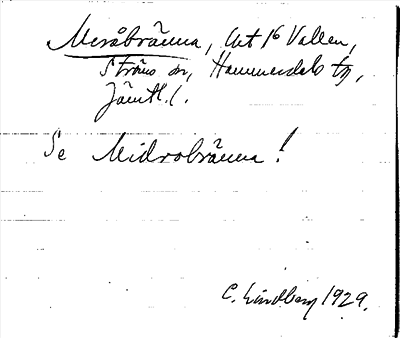 Meråbränna, Urt 1⁶ Vallen,
Ströms sn, Hammerdals tg,
Jämtl. l.
Se Midrobränna!
C. Lindberg 1929.